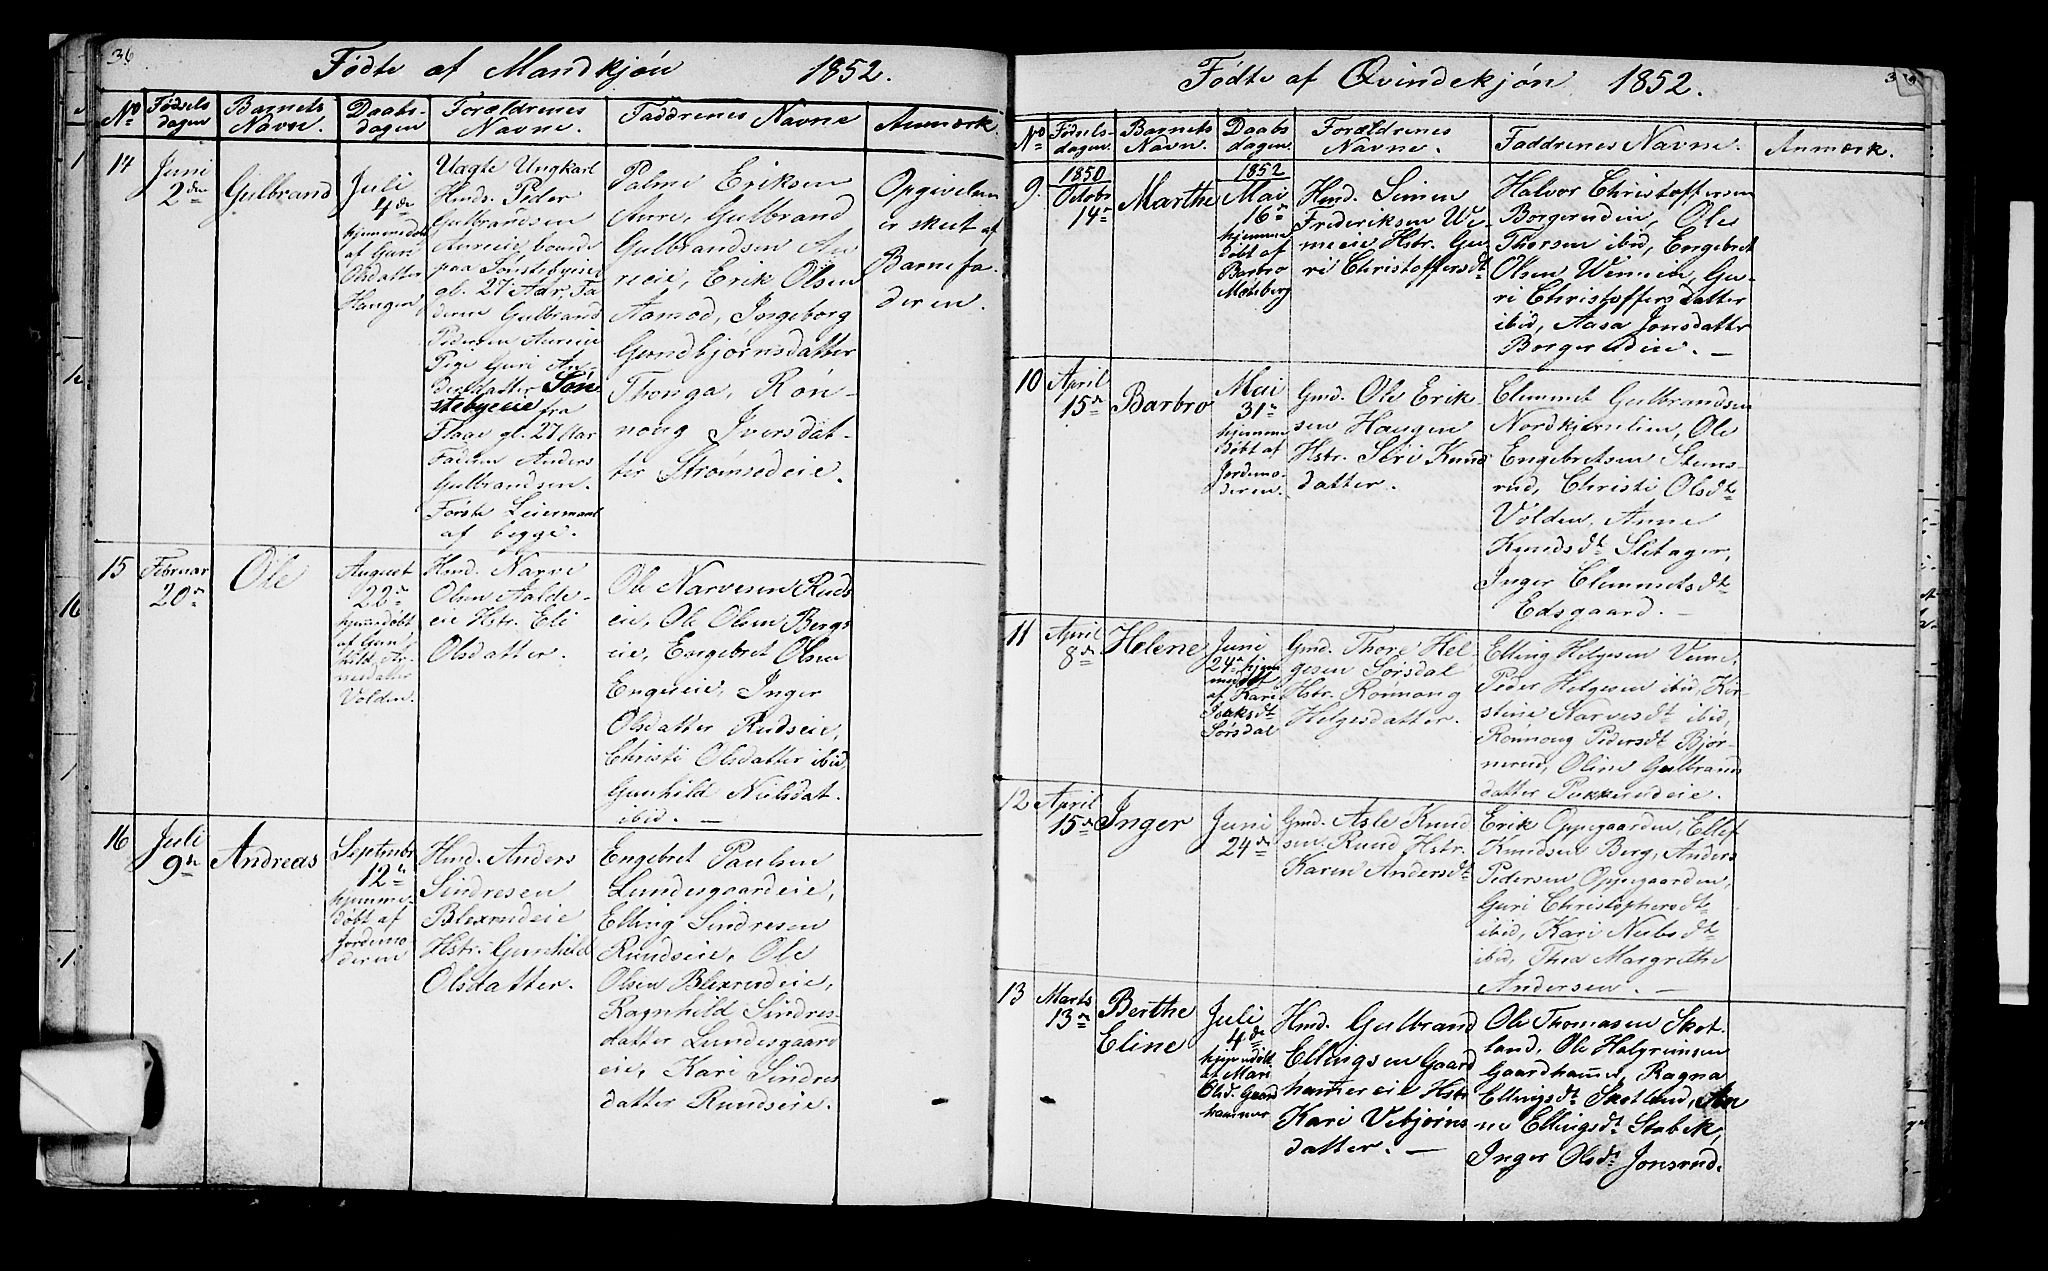 36
Fødte af Mandkjøn 1852.
No Fødsels dagen Barnets Navn. Daabs- dagen Forældrenes Navne. Faddrenes Navne Anmærk.
14
Juni
2den
Gulbrand
Juli
4de
hjemmedøbt
af Guri
Olsdatter
Haugen
Uægte Ungkarl
Hmds. Peder
Gulbrandsen
Aureeie boende
paa Sønstebyeie
gl. 27 Aar, Fa
deren Gulbrand
Pedersen Aureeie
Pige Guri An-
dersdatter Søn
stebyeeie fra
Flaae gl. 27 Aar
Faderen Anders
Gulbrandsen.
Første Leiermaal
af begge.
Palme Eriksen
Aure, Gulbrand
Gulbrandsen Au
reeie, Erik Olsen
Aamod, Ingeborg
Gundbjørnsdatter
Thonga, Røn-
noug Iversdat-
ter Strømsodeie.
Opgivelsen
er skeet af
Barnefa-
deren.
15
Februar
20de
Ole
August
22de
hjemdøbt
af Gun
hild
Volden.
Hmd. Narve
Olsen Aalde-
eie Hstr. Eli
Olsdatter.
Ole Narvesen Ruds
eie, Ole Olsen Bergs
eie, Engebret Olsen
Engereie, Inger
Olsdatter Rudseie,
Christi Olsdatter ibid,
Gunhild Nilsdat.
ibid. —
16
Juli
9de
Andreas
Septembr
12te
hjemme-
døbt af
Jordemo
deren
Hmd. Anders
Sindresen
Blexrudeie
Hstr. Gunhild
Olsdatter.
Engebret Paulsen
Lundesgaardeie,
Elling Sindresen
Rundseie, Ole
Olsen Blexrudeie,
Ragnhild Sindres-
datter Lundesgaard
eie, Kari Sindres
datter Rundseie.
Fødte af Qvindekjøn 1852.
No Fødsels- dagen. Barnets Navn. Daabs dagen. Forældrenes Navne. Faddrenes Navne. Anmærk.
9.
1850
Octobr
14de
Marthe
1852
Mai
16de
hjemme
døbt af
Barbro
Moesberg
Hmd. Simen
Frederiksen We-
meeie Hstr. Gu-
ri Christoffersdt.
Halvor Christoffersen
Borgerudeie, Ole
Thorsen ibid, Engebret
Olsen Wemeeie, Gu-
ri Christoffersdatter
ibid, Aasa Jonsdatter
Borgerudeie. —
10
April
15de
Barbro
Mai
31te
hjemme
døbt af
Jordemo-
deren.
Gmd. Ole Erik-
sen Haugen
Hstr. Siri Knuds
datter.
Clemmet Gulbrandsen
Nordkjernlien, Ole
Engebretsen Stens-
rud, Christi Olsdt.
Volden, Anne
Knudsdt. Sletager,
Inger Clemmetsdt.
Edsgaard. —
11
April
8de
Helene
Juni
24de hjem
medøbt
af Kari
Isaksdt.
Sørsdal
Gmd. Thore Hel-
gesen Sørsdal
Hstr. Rønnoug
Helgesdatter.
Elling Helgesen Veme,
Peder Helgesen ibid, Kir
stine Narvesdt. ibid,
Rønnoug Pedersdt. Bjør-
nerud, Oline Gulbrands
datter Pukkerudeie.
12
April
15de
Inger
Juni
24de
Gmd. Asle Knud
sen Ruud Hstr.
Karen Andersdt.
Erik Oppegaarden, Ellef
Knudsen Berg, Anders
Pedersen Oppegaarden,
Guri Christophersdt.
ibid, Kari Nubsdt.
ibid, Thea Margrethe
Andersen. —
13
Marts
13de
Berthe
Eline
Juli
4de
hjemdøbt
af Mari
Olsd. Gaard
hammer
Hmd. Gulbrand
Ellingsen Gaard
hammereie Hstr
Kari Vebjørns
datter. —
Ole Thomasen Skot-
land, Ole Halgrimsen
Gaardhammer, Ragna
Ellingsdt. Skotland, An
ne Ellingsdt. Stabek,
Inger Olsdt. Jonsrud.